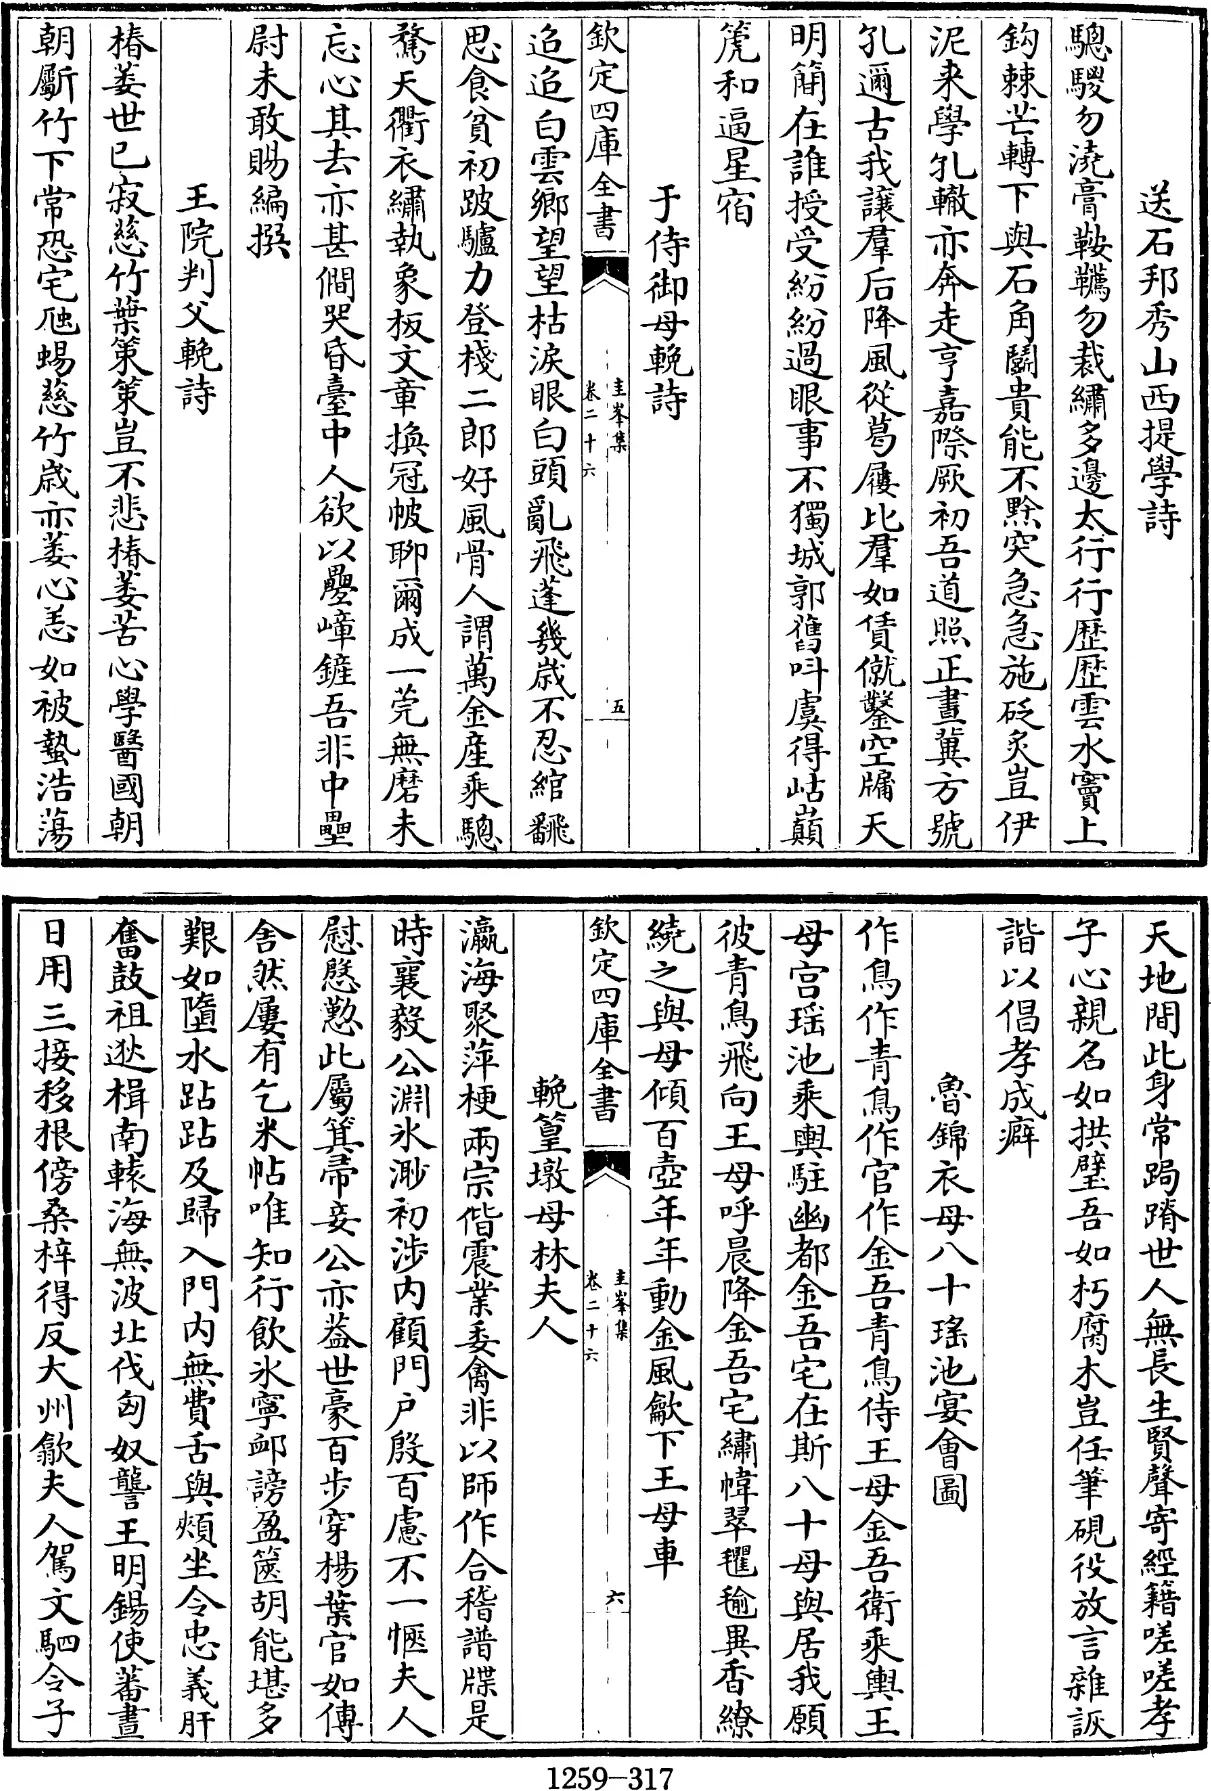 送石邦秀山西提學詩
驄騣勿澆膏鞍韉勿裁繡多邊太行行歴歴雲水竇上
鈎棘芒轉下與石角鬭貴能不黔突急急施砭灸豈伊
泥来學孔轍亦奔走亨嘉際厥初吾道照正晝冀方號
孔邇古我讓羣后降風從葛屨比羣如賃僦鑿空牖天
明簡在誰授受紛紛過眼事不獨城郭舊呌虞得岵巔
箎和逼星宿
于侍御母輓詩
欽定四庫全書
圭峯集
卷二十六
五
迨迨白雲鄉望望枯淚眼白頭亂飛蓬幾歳不忍綰翻
思食貧初跛驢力登棧二郎好風骨人謂萬金産乘驄
騖天衢衣繡執象板文章換冠帔聊爾成一莞無磨未
忘心其去亦甚僩哭昏臺中人欲以疊嶂鏟吾非中壘
尉未敢賜編撰
王院判父輓詩
椿萎世已寂慈竹葉策策豈不悲椿萎苦心學醫國朝
朝斸竹下常恐宅虺蜴慈竹歳亦萎心恙如被蟄浩蕩
天地間此身常跼蹐世人無長生賢聲寄經籍嗟嗟孝
子心親名如拱璧吾如朽腐木豈任筆硯役放言雜詼
諧以倡孝成癖
魯錦衣母八十瑤池宴會圖
作鳥作青鳥作官作金吾青鳥侍王母金吾衛乘輿王
母宫瑶池乘輿駐幽都金吾宅在斯八十母與居我願
彼青鳥飛向王母呼晨降金吾宅繡幃翠氍毹異香繚
繞之與母傾百壺年年動金風歈下王母車
欽定四庫全書
圭峯集
卷二十六
六
輓篁墩母林夫人
瀛海聚萍梗兩宗偕震業委禽非以師作合稽譜牒是
時襄毅公淵氷渺初涉内顧門户殷百慮不一愜夫人
慰慇懃此屬箕帚妾公亦葢世豪百步穿楊葉官如傳
舍然屢有乞米帖唯知行飲氷寧䘏謗盈篋胡能堪多
艱如墮水跕跕及歸入門内無費舌與頰坐令忠義肝
奮鼓祖逖楫南轅海無波北伐匈奴讋王明錫使蕃晝
日用三接移根傍桑梓得反大州歙夫人駕文駟令子
1259-317